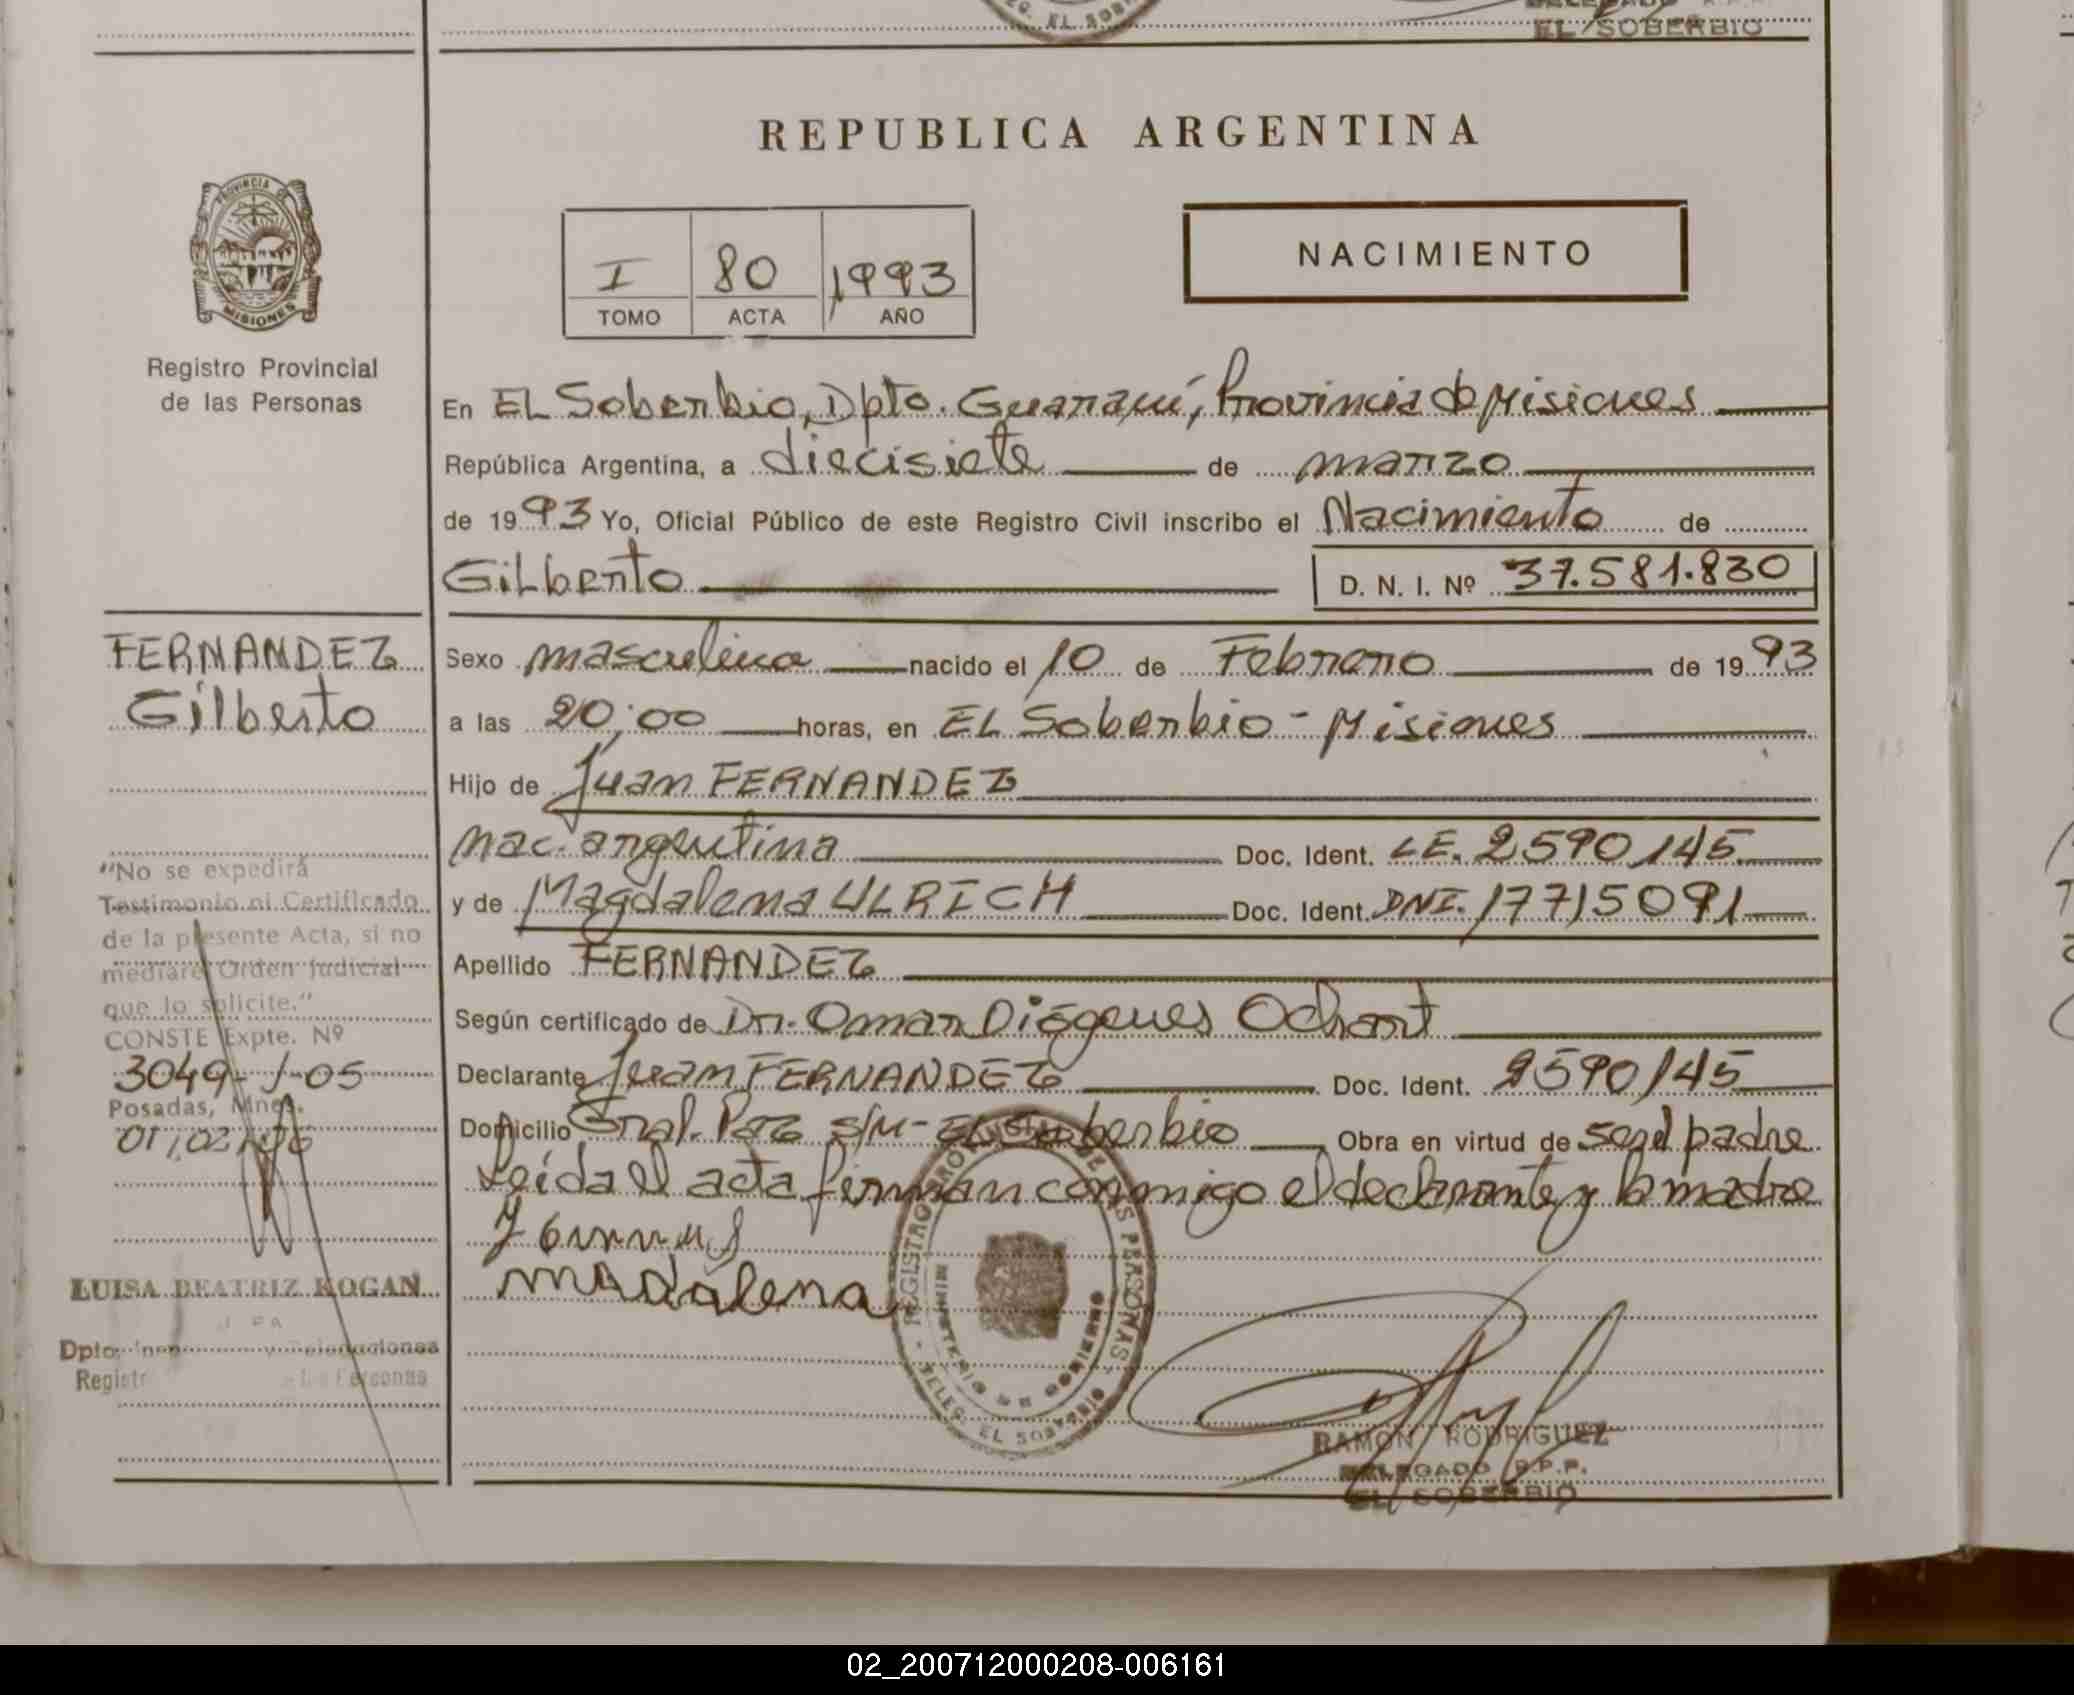 EL SOBERBIO
REPUBLICA ARGENTINA
PROVINCIA DE
MISIONES
Registro Provincial
de las Personas
I 80 1993
TOMO ACTA AÑO
NACIMIENTO
En EL Soberbio, Dpto. Guaraní, Provincia de Misiones
República Argentina, a diecisiete de marzo
de 1993 Yo, Oficial Público de este Registro Civil inscribo el Nacimiento de
Gilberto D. N. I. Nº 37.581.830
FERNANDEZ
Gilberto
Sexo masculino nacido el 10 de Febrero de 1993
a las 20;00 horas, en EL Soberbio - Misiones
Hijo de Juan FERNANDEZ
nac. argentina Doc. Ident. LE. 2590145
y de Magdalena ULRICH Doc. Ident. DNI. 17715091
Apellido FERNANDEZ
Según certificado de Dr. Omar Diógenes
Declarante Juan FERNANDEZ Doc. Ident. 2590145
Domicilio Gral. Paz s/n - EL Soberbio Obra en virtud de ser el padre
Leída el acta firman conmigo el declarante y la madre
"No se expedirá
Testimonio ni Certificado
de la presente Acta, si no
mediare Orden Judicial
que lo solicite."
CONSTE Expte. Nº
3049-1-05
Posadas, Mnes.
01,02,06
LUISA BEATRIZ KOGAN
Dpto.
Registr
madalena
REGISTRO PROVINCIAL DE LAS PERSONAS
MINISTERIO DE GOBIERNO
DELEG. EL SOBERBIO
RAMON RODRIGUEZ
DELEGADO R.P.P.
EL SOBERBIO
02_200712000208-006161